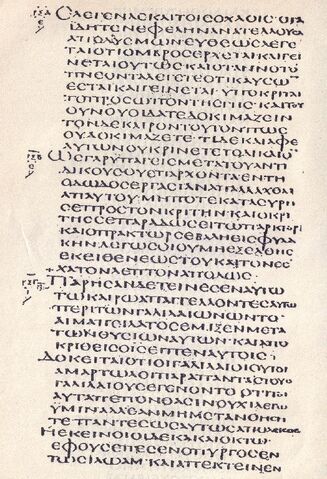 C ΔΕΓΕΝΔΕΚΑΙΤΟΙCΟΧΛΟΙC ΟΤΑ
ΙΔΗΤΕΝΕΦΕΛΗΝΑΝΑΤΕΛΛΟΥCΑ
ΑΠΟΔΥCΜΩΝΕΥΘΕΩCΛΕΓΕ
ΤΑΙΟΤΙΟΜΒΡΟCΕΡΧΕΤΑΙΚΑΙΓΕΙ
ΝΕΤΑΙΟΥΤΩCΚΑΙΟΤΑΝΝΟΤΟ
ΠΝΕΟΝΤΑΛΕΓΕΤΕΟΤΙΚΑΥCΩ
ΕCΤΑΙΚΑΙΓΕΙΝΕΤΑΙ ΥΠΟΚΡΙΤΑΙ
ΤΟΠΡΟCΩΠΟΝΤΗCΓΗC ΚΑΙΤΟΥ
ΟΥΝΟΥΟΙΔΑΤΕΔΟΚΙΜΑΖΕΙΝ
ΤΟΝΔΕΚΑΙΡΟΝΤΟΥΤΟΝΠΩC
ΟΥΔΟΚΙΜΑΖΕΤΕ ΤΙΔΕΚΑΙΑΦΕ
ΑΥΤΩΝΟΥΚΡΙΝΕΤΕΤΟΔΙΚΑΙΟ
ΩCΓΑΡΥΠΑΓΕΙCΜΕΤΑΤΟΥΑΝΤΙ
ΔΙΚΟΥCΟΥΕΠΑΡΧΟΝΤΑΕΝΤΗ
ΟΔΩΔΟCΕΡΓΑCΙΑΝΑΠΑΛΛΑΧΘΑΙ
ΑΠΑΥΤΟΥΜΗΠΟΤΕΚΑΤΑCΥΡΗ
CΕΠΡΟCΤΟΝΚΡΙΤΗΝΚΑΙΟΚΡΙ
ΤΗCCΕΠΑΡΑΔΩCΕΙΤΩΠΡΑΚΤΟΡΙ
ΚΑΙΟΠΡΑΚΤΩΡCΕΒΑΛΗΕΙCΦΥΛΑ
ΚΗΝΛΕΓΩCΟΙΟΥΜΗΕΞΕΛΘΗC
ΕΚΕΙΘΕΝΕΩCΤΟΥΚΑΙΤΟΝΕC
ΧΑΤΟΝΛΕΠΤΟΝΑΠΟΔΩC
ΠΑΡΗCΑΝΔΕΤΙΝΕCΕΝΑΥΤΩ
ΤΩΚΑΙΡΩΑΠΑΓΓΕΛΛΟΝΤΕCΑΥΤΩ
ΠΕΡΙΤΩΝΓΑΛΙΛΑΙΩΝΩΝΤΟ
ΑΙΜΑΠΙΛΑΤΟCΕΜΙΞΕΝΜΕΤΑ
ΤΩΝΘΥCΙΩΝΑΥΤΩΝ ΚΑΙΑΠΟ
ΚΡΙΘΕΙCΟΙCΕΙΠΕΝΑΥΤΟΙC
ΔΟΚΕΙΤΑΙΟΤΙΟΙΓΑΛΙΛΑΙΟΙΟΥΤΟΙ
ΑΜΑΡΤΩΛΟΙΠΑΡΑΠΑΝΤΑCΤΟΥC
ΓΑΛΙΛΑΙΟΥCΕΓΕΝΟΝΤΟ ΟΤΙΤΑ
ΑΥΤΑΠΕΠΟΝΘΑCΙΝΟΥΧΙΛΕΓΩ
ΥΜΙΝΑΛΛΕΑΝΜΗΜΕΤΑΝΟΗCΗ
ΤΕΠΑΝΤΕCΩCΑΥΤΩCΑΠΟΛΕΙCΘΕ
ΗΕΚΕΙΝΟΙΟΙΔΕΚΑΚΑΙΟΚΤΩ
ΕΦΟΥCΕΠΕCΕΝΟΠΥΡΓΟCΕΝ
ΤΩCΙΛΩΑΜ ΚΑΙΑΠΕΚΤΕΙΝΕΝ